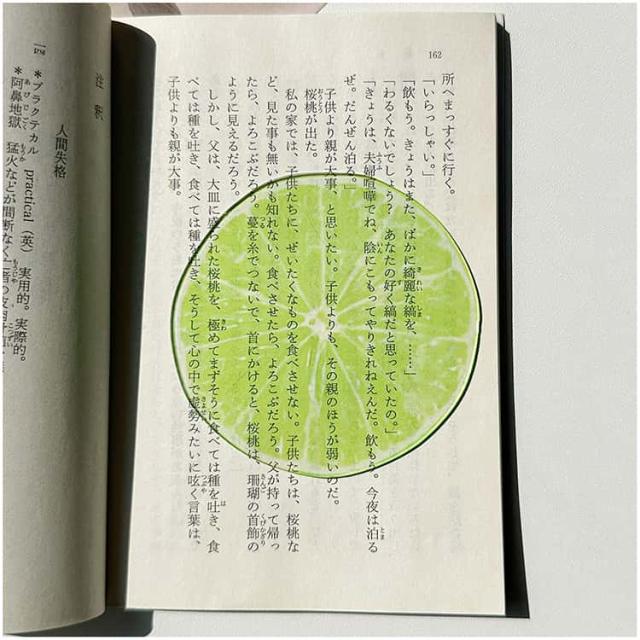 162
所へまっすぐに行く。
「いらっしゃい。」
「飲もう。きょうはまた、ばかに綺麗な縞を、……」
「わるくないでしょう？　あなたの好く縞だと思っていたの。」
「きょうは、夫婦喧嘩でね、陰にこもってやりきれねえんだ。飲もう。今夜は泊る
ぜ。だんぜん泊る。」
子供より親が大事、と思いたい。子供よりも、その親のほうが弱いのだ。
桜桃が出た。
私の家では、子供たちに、ぜいたくなものを食べさせない。子供たちは、桜桃な
ど、見た事も無いかも知れない。食べさせたら、よろこぶだろう。父が持って帰っ
たら、よろこぶだろう。蔓を糸でつないで、首にかけると、桜桃は、珊瑚の首飾の
ように見えるだろう。
しかし、父は、大皿に盛られた桜桃を、極めてまずそうに食べては種を吐き、食
べては種を吐き、食べては種を吐き、そうして心の中で虚勢みたいに呟く言葉は、
子供よりも親が大事。
注釈
人間失格
＊プラクテカル　practical（英）実用的。実際的。
＊阿鼻地獄　猛火などが間断なく